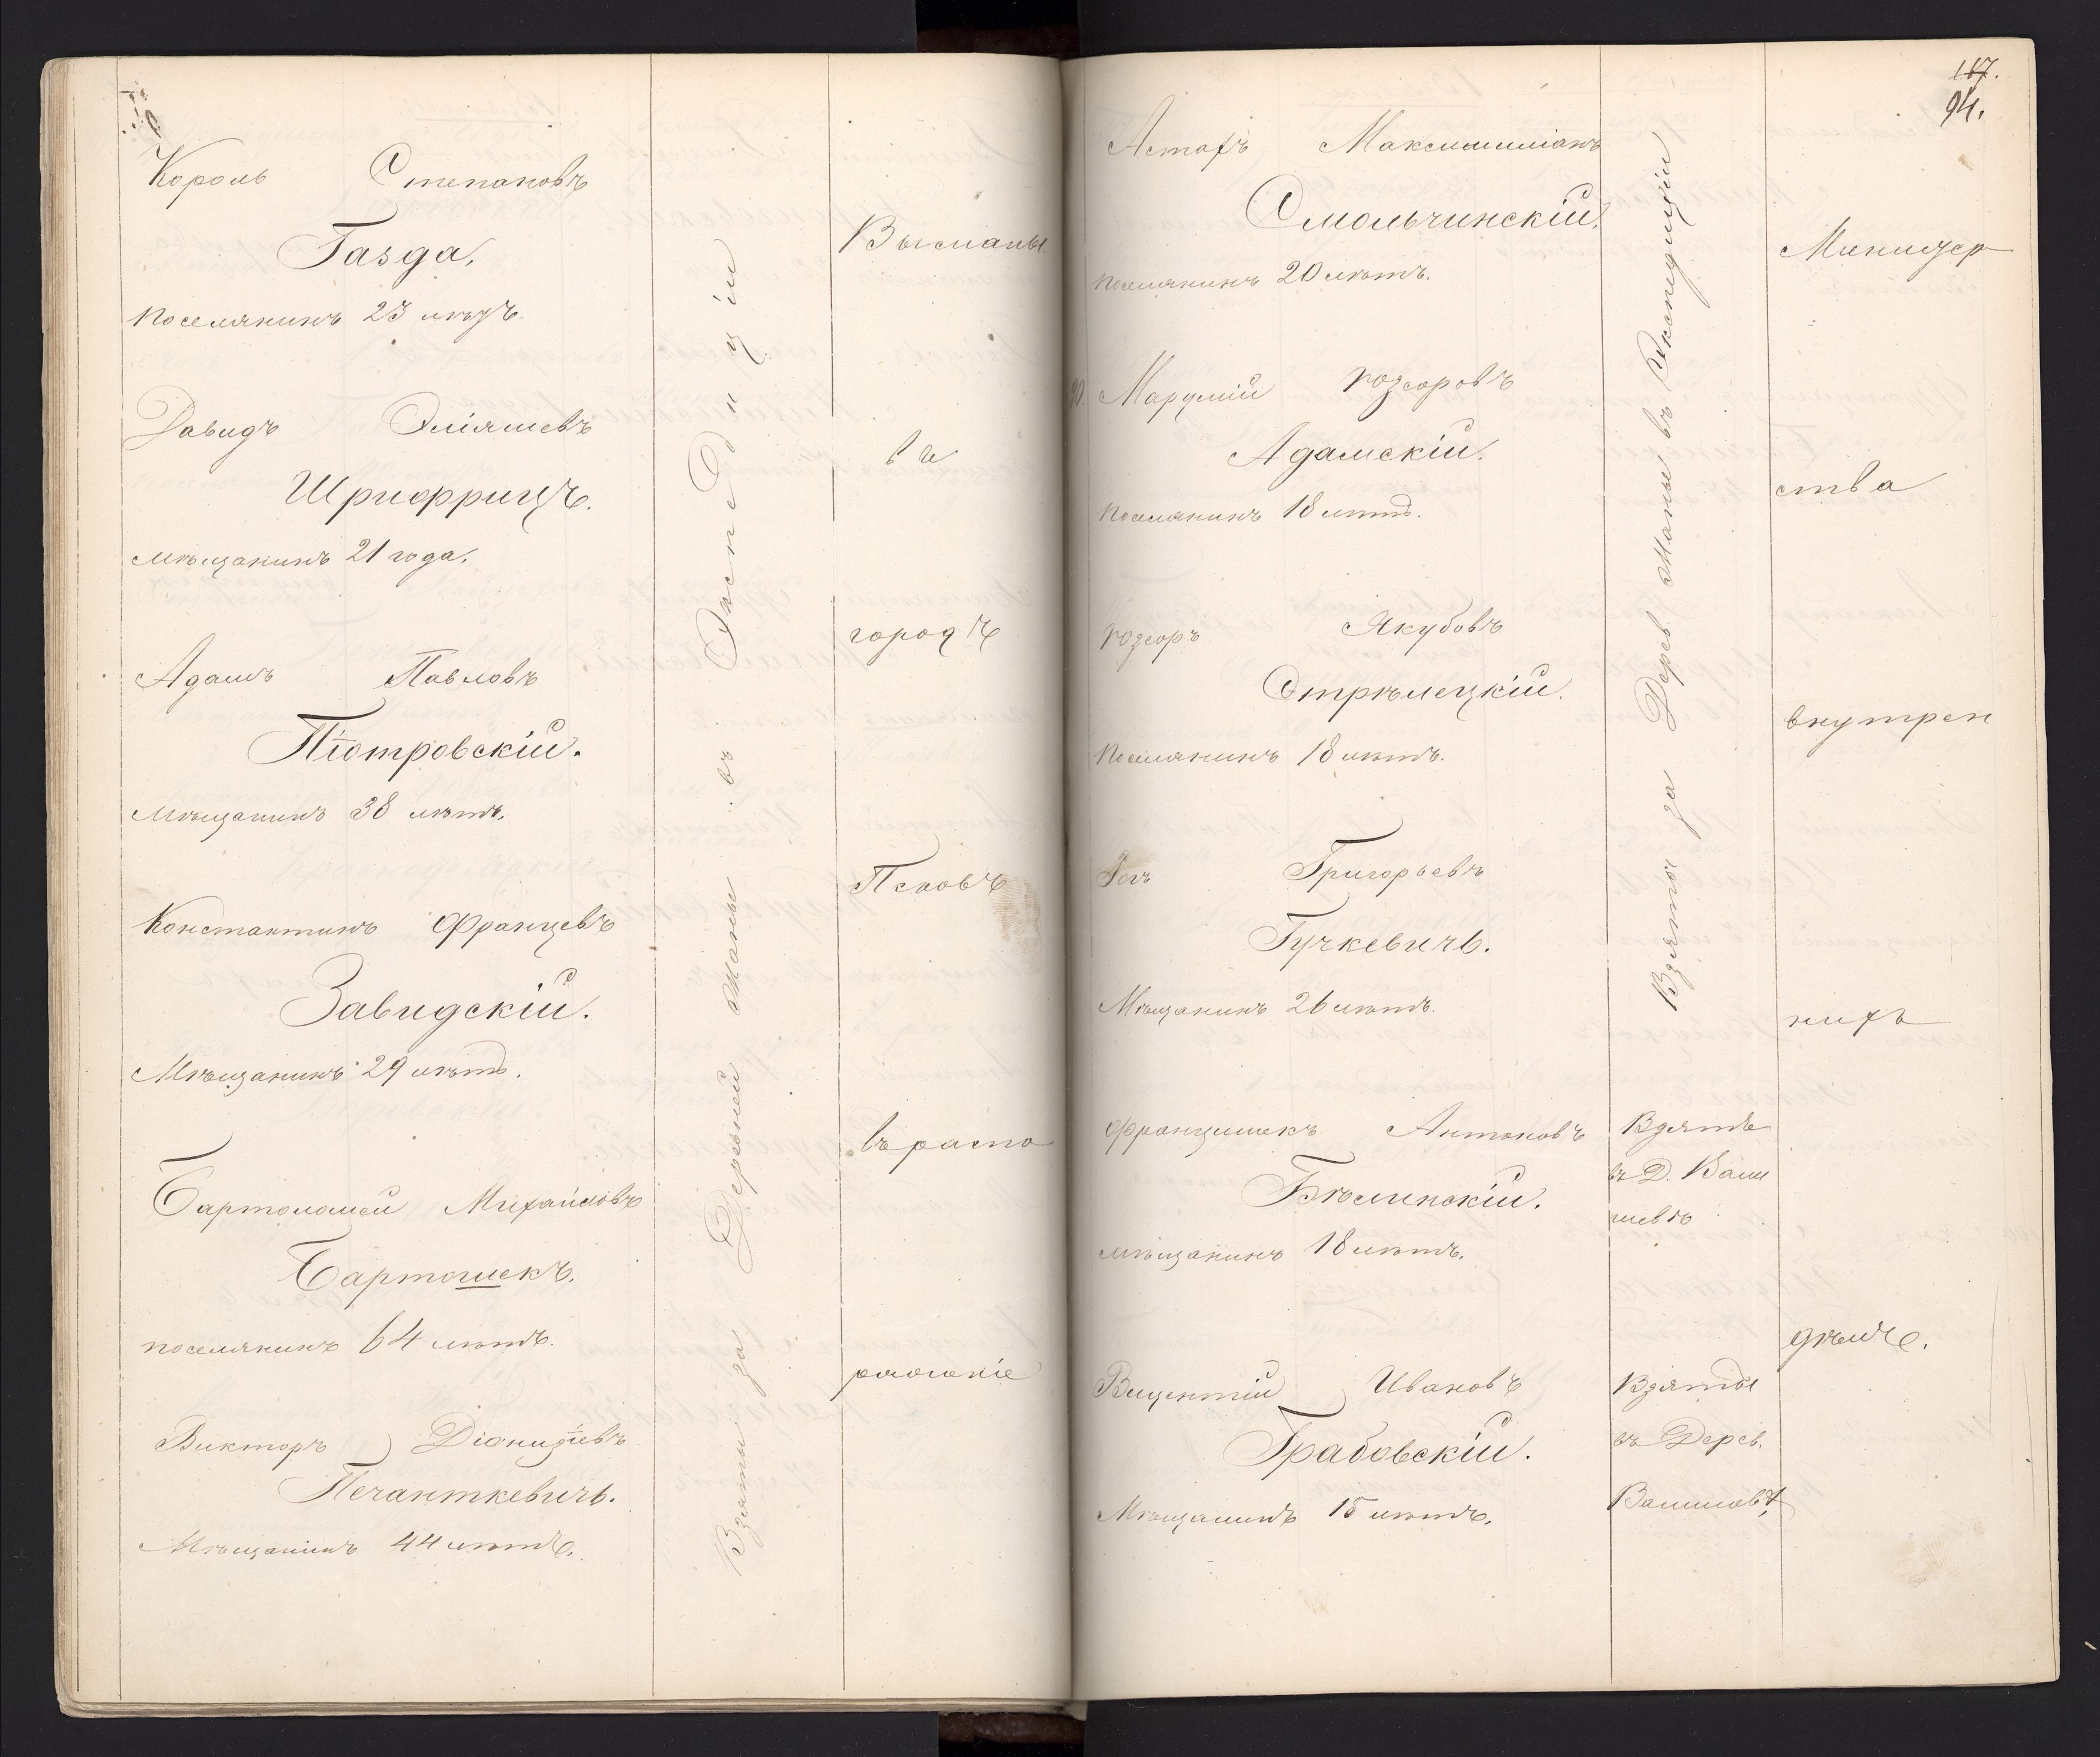 Король Степановъ
Газда.
поселянинъ 23 лѣтъ.
Давидъ Эліяшевъ
Шрифрицъ.
мѣщанинъ 21 года.
Адамъ Павловъ
Піотровскій.
мѣщанинъ 38 лѣтъ.
Константинъ Францевъ
Завидскій.
Мѣщанинъ 29 лѣтъ.
Бартоломей Михайловъ
Бартошекъ.
поселянинъ 64 лѣтъ.
Викторъ Діонизіевъ
Печанткевичъ.
Мѣщанинъ 44 лѣтъ.
Взяты за Деревней Маны въ Экспедиціи
Высланы
въ
городъ
Псковъ
въ распо
ряженіе
117.
94.
Астафъ Максимиліанъ
Смольчинскій.
поселянинъ 20 лѣтъ.
90. Марцелій Юзефовъ
Адамскій.
поселянинъ 18 лѣтъ.
Юзефъ Якубовъ
Стрѣлецкій.
Поселянинъ 18 лѣтъ.
Григорьевъ
Гучкевичъ.
Мѣщанинъ 26 лѣтъ.
Францишекъ Антоновъ
Бѣлинскій.
мѣщанинъ 18 лѣтъ.
Вицентій Ивановъ
Грабовскій.
Мѣщанинъ 15 лѣтъ.
Взяты за Дерев Маны въ Экспедиціи
Взятъ
въ Д. Ваш
Взятъ
въ Дерев.
Министер
ства
внутрен
нихъ
дѣлъ.